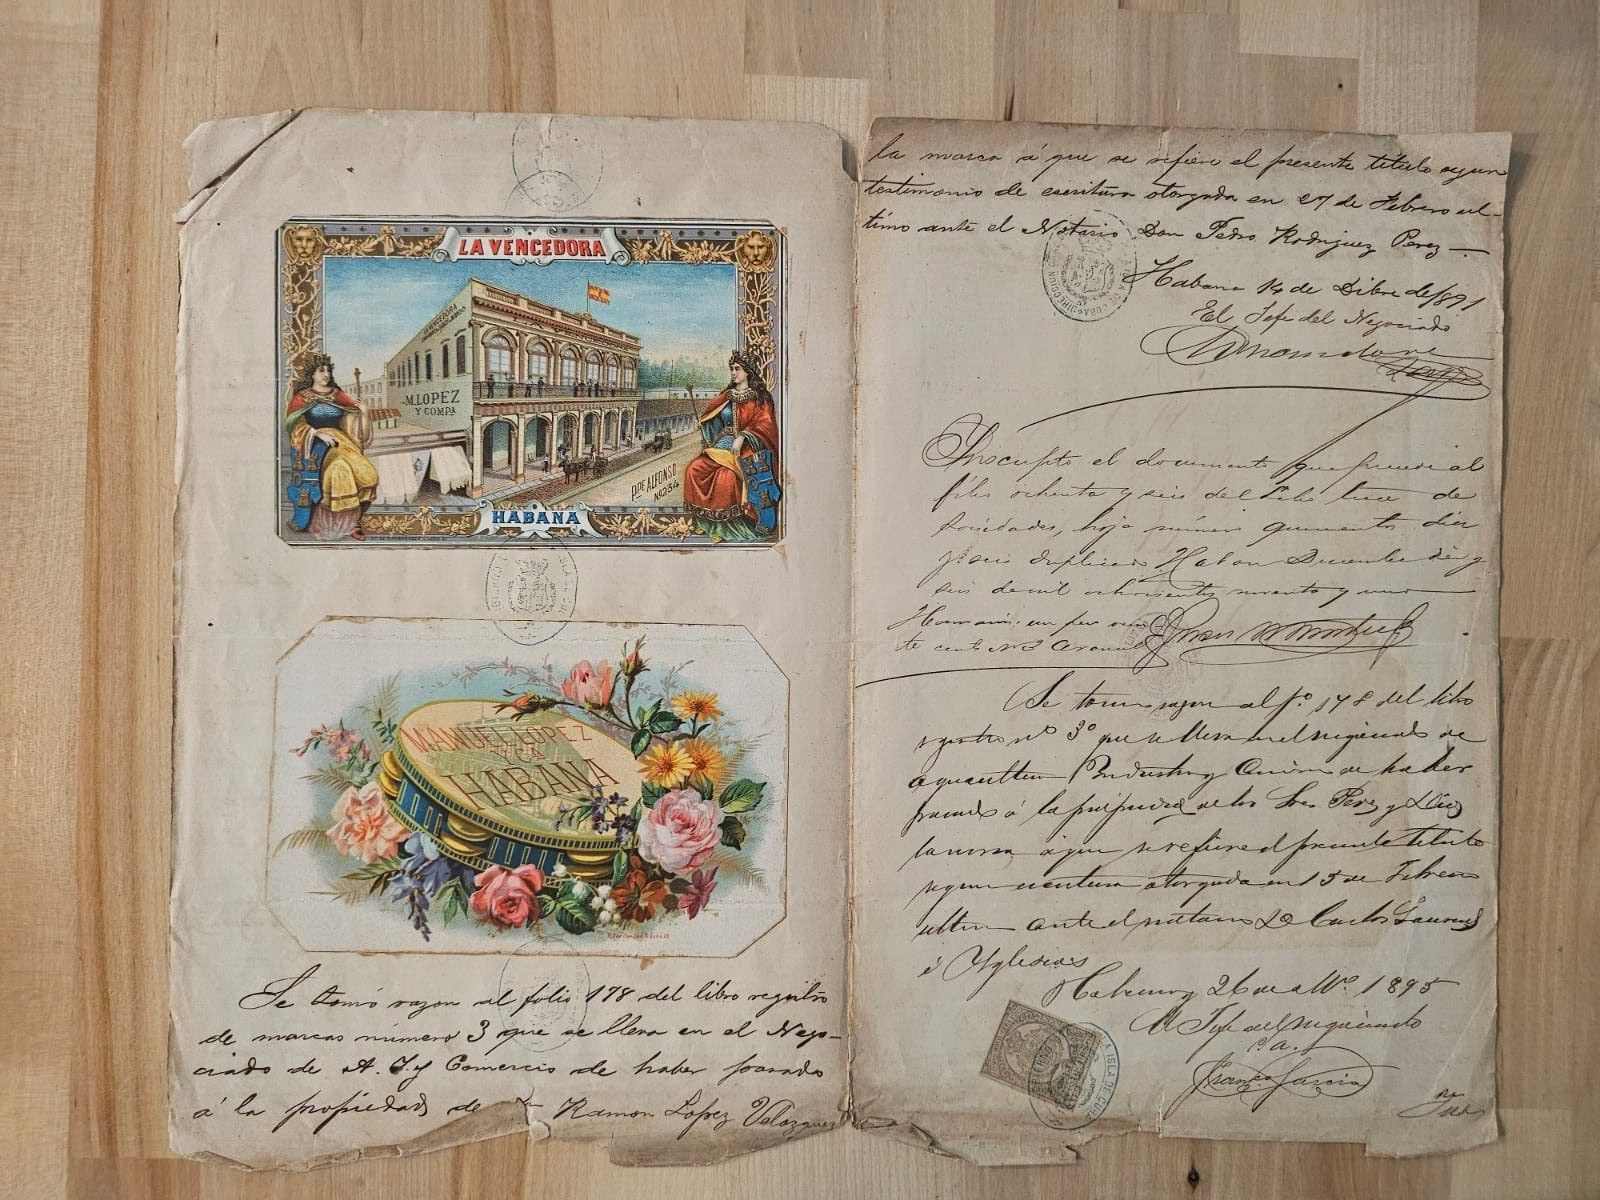 LA VENCEDORA
M. LOPEZ
Y COMPA
Ppe ALFONSO
No 254
HABANA
MANUEL LOPEZ
Y Ca
HABANA
Se tomó razon al folio 178 del libro registro
de marcas número 3 que se lleva en el Nego-
ciado de A. I. y Comercio de haber pasado
á la propiedad de Ramon Lopez Velazquez
la marca á que se refiere el presente título segun
testimonio de escritura otorgada en 27 de Febrero úl-
timo ante el Notario Don Pedro Rodriguez Perez
ISLA DE CUBA DIRECCION
Habana 14 de Dibre de 1891
El Jefe del Negociado
Inscripto el documento que precede al
fólio ochenta y seis del Libro trece de
Sociedades, hoja número quinientos diez
y seis duplicado Habana Diciembre diez y
seis de mil ochocientos noventa y uno
Se tomó razon al fo. 178 del libro
registro no 3o que se lleva en el negociado de
Agricultura Industria y Comercio de haber
pasado á la propiedad de los Sres Perez y Diaz
la marca á que se refiere el presente titulo
segun escritura otorgada en 15 de Febrero
ultimo ante el notario Dn Carlos Laurent
é Yglesias
Habana y 26 de 1895
El Jefe del negociado
P.A.
Franco Garcia
LA ISLA DE CUBA